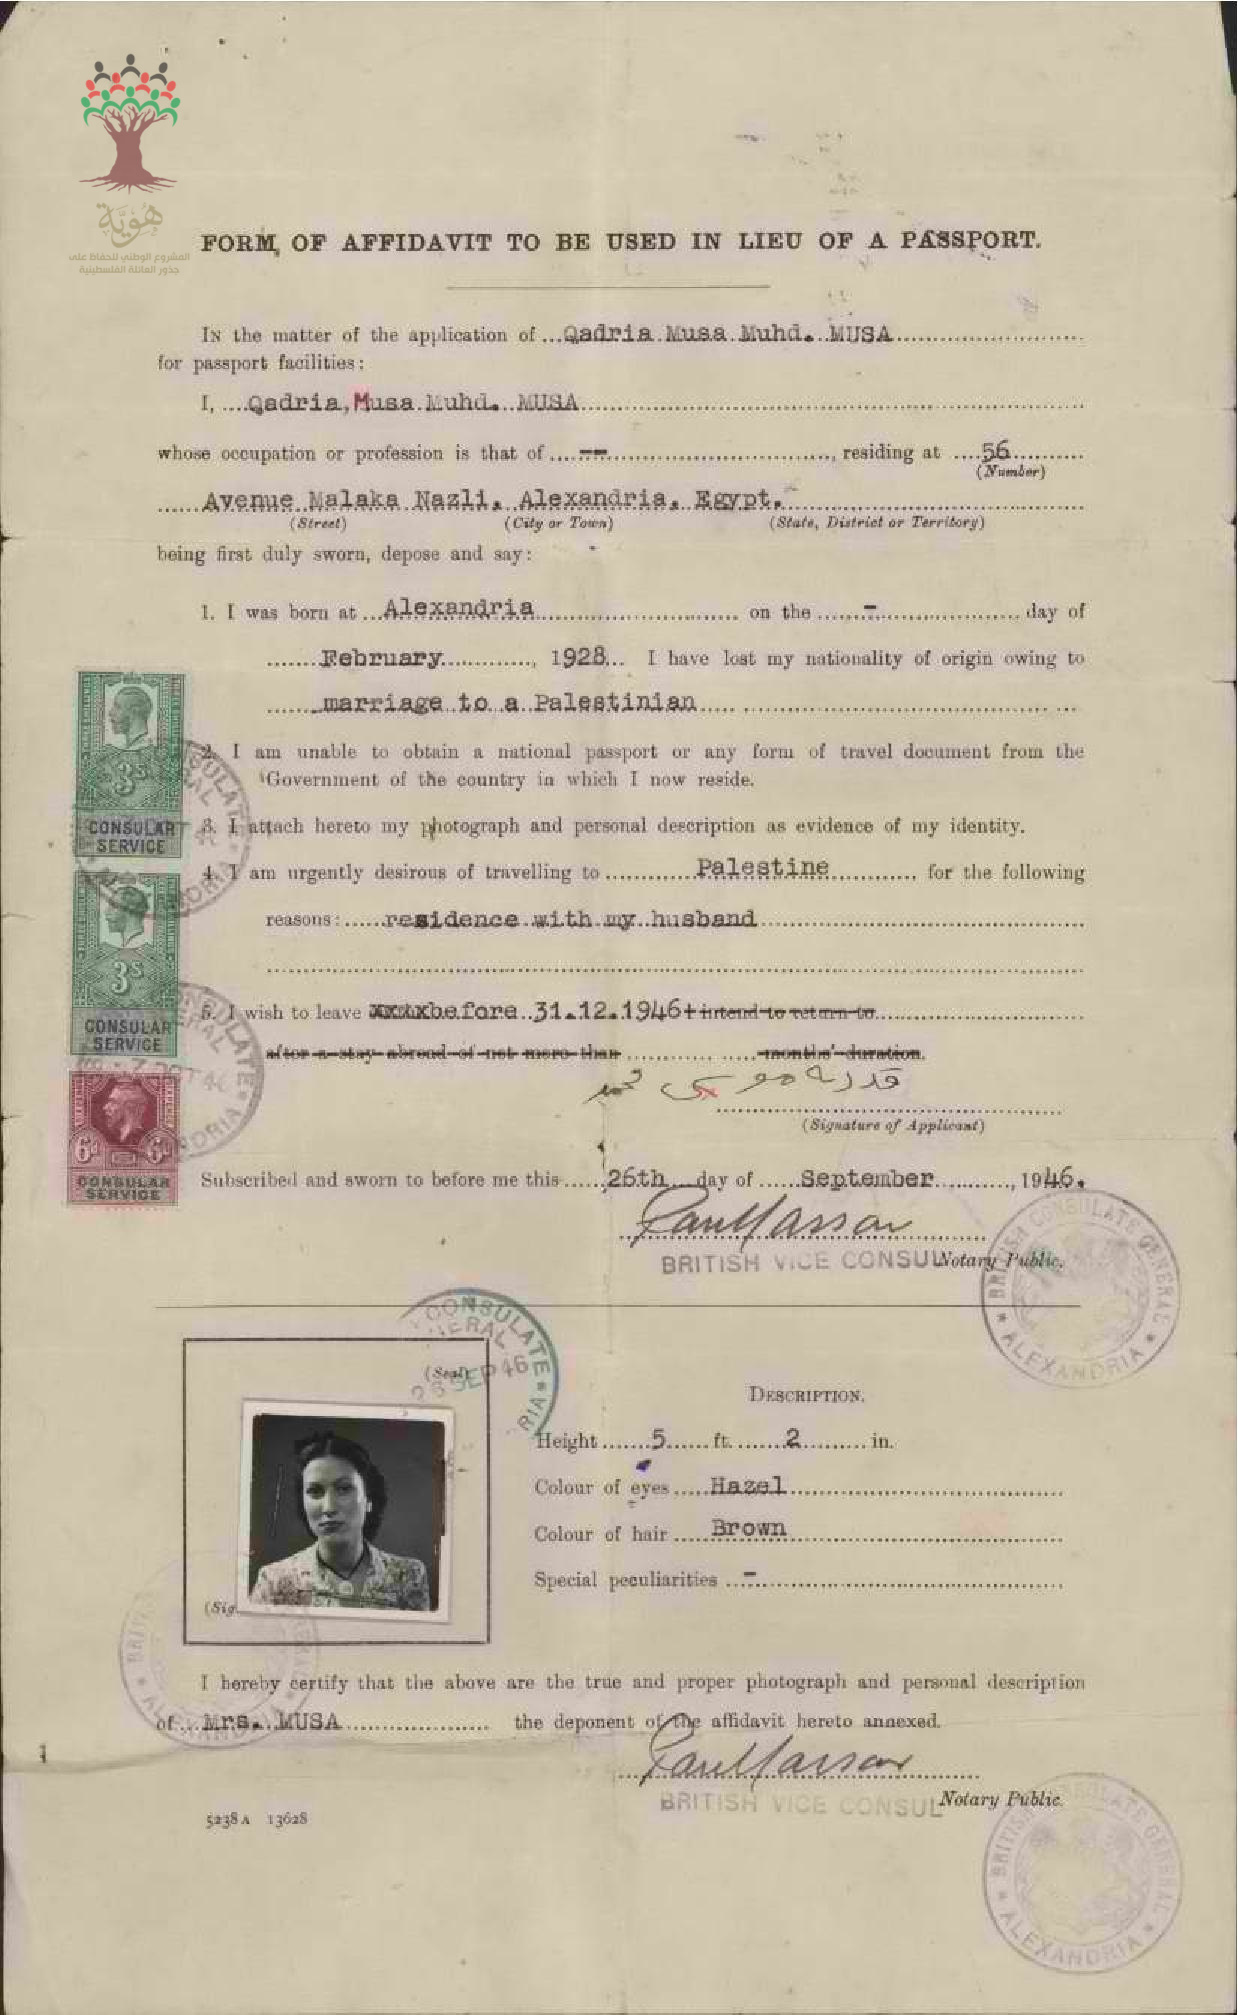 هُويَّة
المشروع الوطني للحفاظ على
جذور العائلة الفلسطينية
FORM OF AFFIDAVIT TO BE USED IN LIEU OF A PASSPORT.
IN the matter of the application of Qadria Musa Muhd. MUSA
for passport facilities:
I, Qadria, Musa Muhd. MUSA
whose occupation or profession is that of --, residing at 56
(Number)
Avenue Malaka Nazli. Alexandria. Egypt.
(Street) (City or Town) (State, District or Territory)
being first duly sworn, depose and say:
1. I was born at Alexandria on the - day of
February, 1928 I have lost my nationality of origin owing to
marriage to a Palestinian
2. I am unable to obtain a national passport or any form of travel document from the
Government of the country in which I now reside.
3. I attach hereto my photograph and personal description as evidence of my identity.
4. I am urgently desirous of travelling to Palestine, for the following
reasons: residence with my husband
5. I wish to leave xxxxxbefore 31.12.1946 + intend to return to
after a stay abroad of not more than months' duration.
قدريه موسى محمد
(Signature of Applicant)
Subscribed and sworn to before me this 26th day of September, 1946.
BRITISH VICE CONSUL Notary Public.
BRITISH CONSULATE GENERAL
* ALEXANDRIA *
3s
CONSULAR
SERVICE
3s
CONSULAR
SERVICE
7 OCT 46
6d 6d
CONSULAR
SERVICE
CONSULATE
(Seal)
26 SEP 46
DESCRIPTION.
Height 5 ft. 2 in.
Colour of eyes Hazel
Colour of hair Brown
Special peculiarities -
(Sig
I hereby certify that the above are the true and proper photograph and personal description
of Mrs. MUSA the deponent of the affidavit hereto annexed.
BRITISH VICE CONSUL Notary Public.
5238A 13628
BRITISH CONSULATE GENERAL
* ALEXANDRIA *